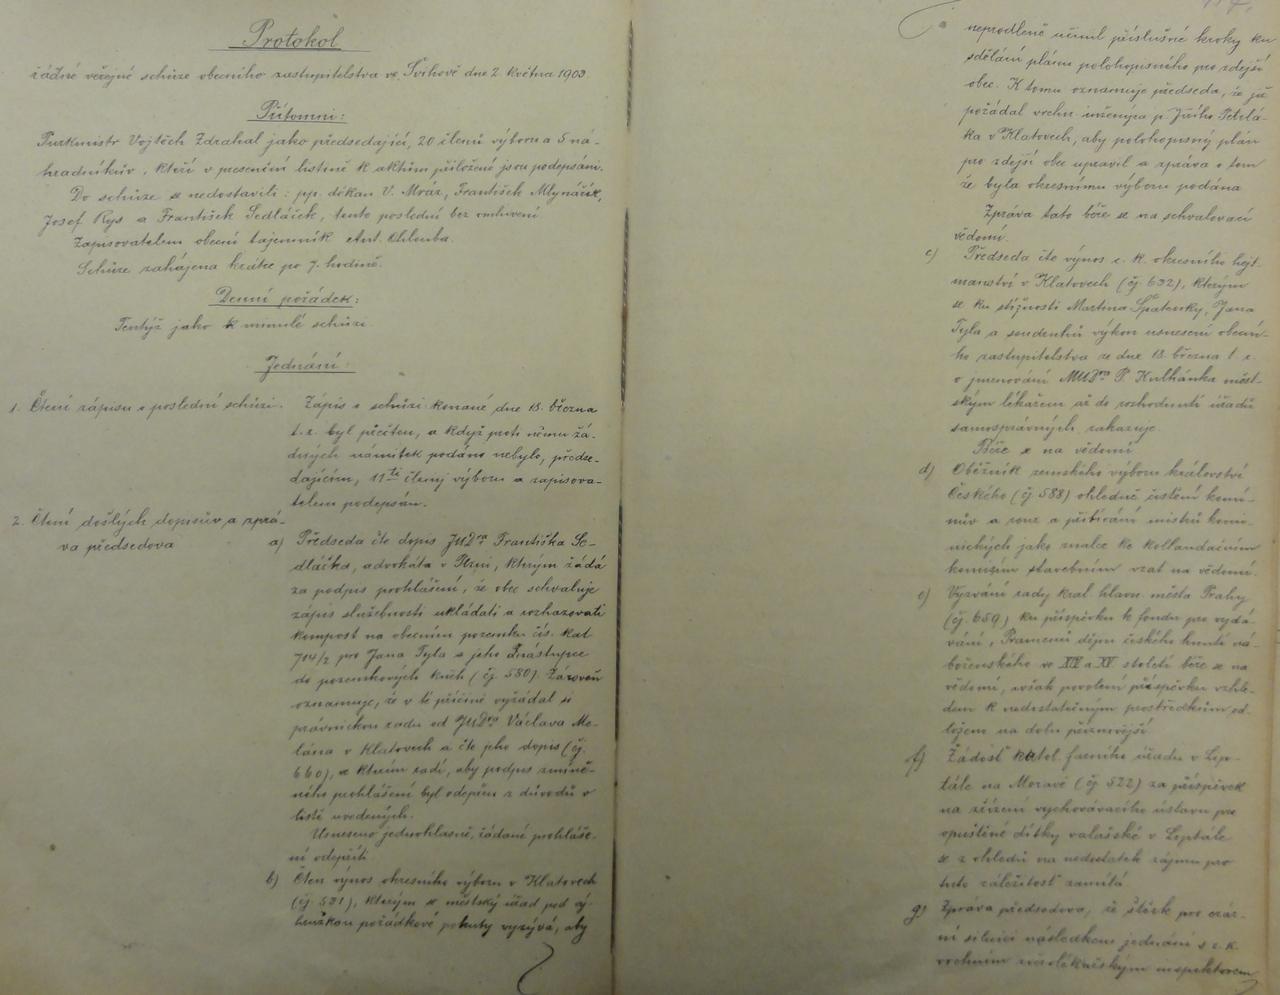 Protokol
řádné veřejné schůze obecního zastupitelstva ve Švihově dne 2. května 1903
Přítomni:
Purkmistr Vojtěch Zdrahal jako předsedající, 20 členů výboru a 5 ná-
hradníkův, kteří v presenční listině k aktům přiložené jsou podepsáni.
Do schůze se nedostavili: pp. děkan V. Mráz, František Mlynářík,
Josef Rys a František Sedláček, tento poslední bez omluvení
Zapisovatelem obecní tajemník Ant. Chlouba.
Schůze zahájena krátce po 7. hodině.
Denní pořádek:
Tentýž jako k minulé schůzi.
Jednání:
1. Čtení zápisu o poslední schůzi.
Zápis o schůzi konané dne 18. března
t. r. byl přečten, a když proti němu žá-
dných námitek podáno nebylo, předse-
dajícím, 11ti členy výboru a zapisova-
telem podepsán.
2. Čtení došlých dopisův a zprá-
va předsedova
a) Předseda čte dopis JUDra Františka Se-
dláčka, advokáta v Plzni, kterým žádá
za podpis prohlášení, že obec schvaluje
zápis služebnosti ukládati a rozhazovati
kompost na obecním pozemku čís. kat
704/2 pro Jana Tyla a jeho nástupce
do pozemkových knih (čj. 580). Zároveň
oznamuje, že v té příčině vyžádal si
právnickou radu od JUDra Václava Me-
lána v Klatovech a čte jeho dopis (čj.
660), ve kterém radí, aby podpis zmíně-
ného prohlášení byl odepřen z důvodů v
listě uvedených.
Usneseno jednohlasně, žádané prohláše-
ní odepříti.
b) Čten výnos okresního výboru v Klatovech
(čj. 591), kterým se městský úřad pod vý-
hružkou pořádkové pokuty vyzývá, aby
neprodleně učinil příslušné kroky ku
sdělání plánu polohopisného pro zdejší
obec. K tomu oznamuje předseda, že již
požádal vrchn. inženýra p. Jiřího Petrlá-
ka v Klatovech, aby polohopisný plán
pro zdejší obec upravil a zpráva o tom
že byla okresnímu výboru podána
Zpráva tato béře se na schvalovací
vědomí.
c) Předseda čte výnos c. k. okresního hejt-
manství v Klatovech (čj. 692), kterým
se ku stížnosti Martina Špatenky, Jana
Tyla a soudruhů výkon usnesení obecní-
ho zastupitelstva ze dne 18. března t. r.
o jmenování MUDra P. Kulhánka měst-
ským lékařem až do rozhodnutí úřadů
samosprávných zakazuje.
Béře se na vědomí.
d) Oběžník zemského výboru království
Českého (čj. 588) ohledně čistění komí-
nův a rour a přibírání mistrů komi-
nických jako znalce ke kollaudačním
komisím stavebním vzat na vědomí.
e) Vyzvání rady král. hlavn. města Prahy
(čj. 659) ku příspěvku k fondu pro vydá-
vání „Pramenů dějin českého hnutí ná-
boženského ve XIV a XV století béře se na
vědomí, však povolení příspěvku vzhle-
dem k nedostatečným prostředkům od-
loženo na dobu příznivější.
f) Žádost katol. farního úřadu v Lip-
tále na Moravě (čj. 522) za příspěvek
na zřízení vychovávacího ústavu pro
opuštěné dítky valašské v Liptále
se z ohledů na nedostatek zájmu pro
tuto záležitost zamítá.
g) Zpráva předsedova, že štěrk pro erár-
ní silnici následkem jednání s c. k.
vrchním inspektorem